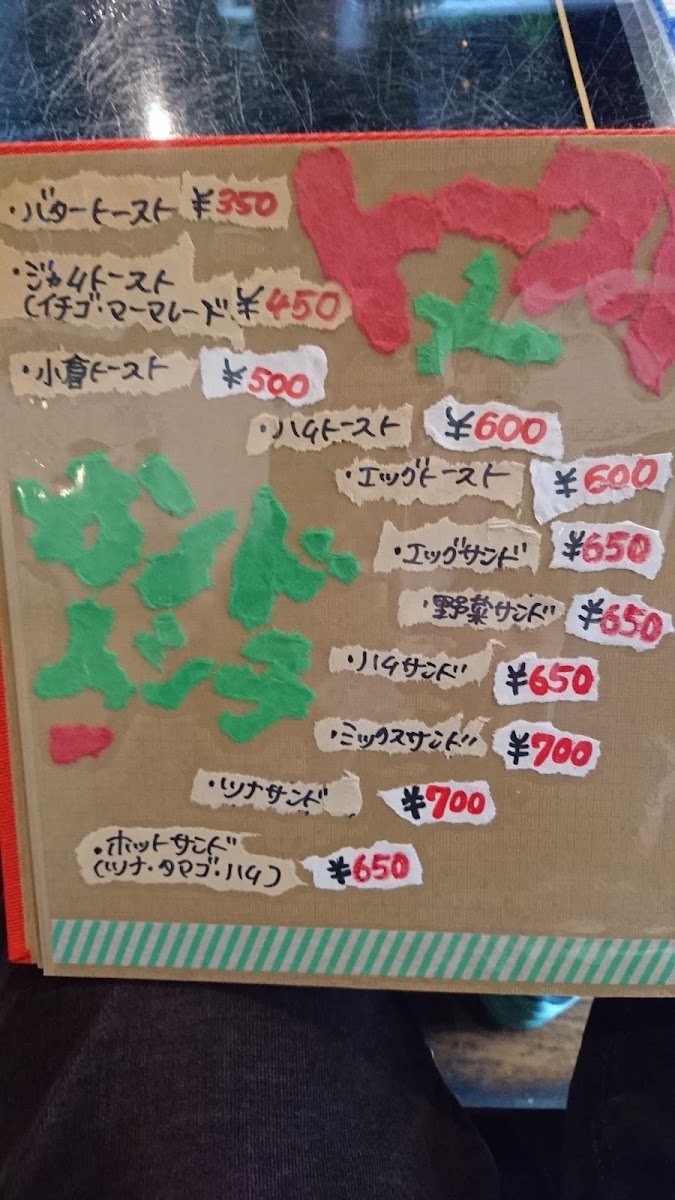 トースト
・バタートースト ¥350
・ジャムトースト
(イチゴ・マーマレード) ¥450
・小倉トースト ¥500
・ハムトースト ¥600
・エッグトースト ¥600
サンド
・エッグサンド ¥650
・野菜サンド ¥650
・ハムサンド ¥650
・ミックスサンド ¥700
・ツナサンド ¥700
・ホットサンド
(ツナ・タマゴ・ハム) ¥650